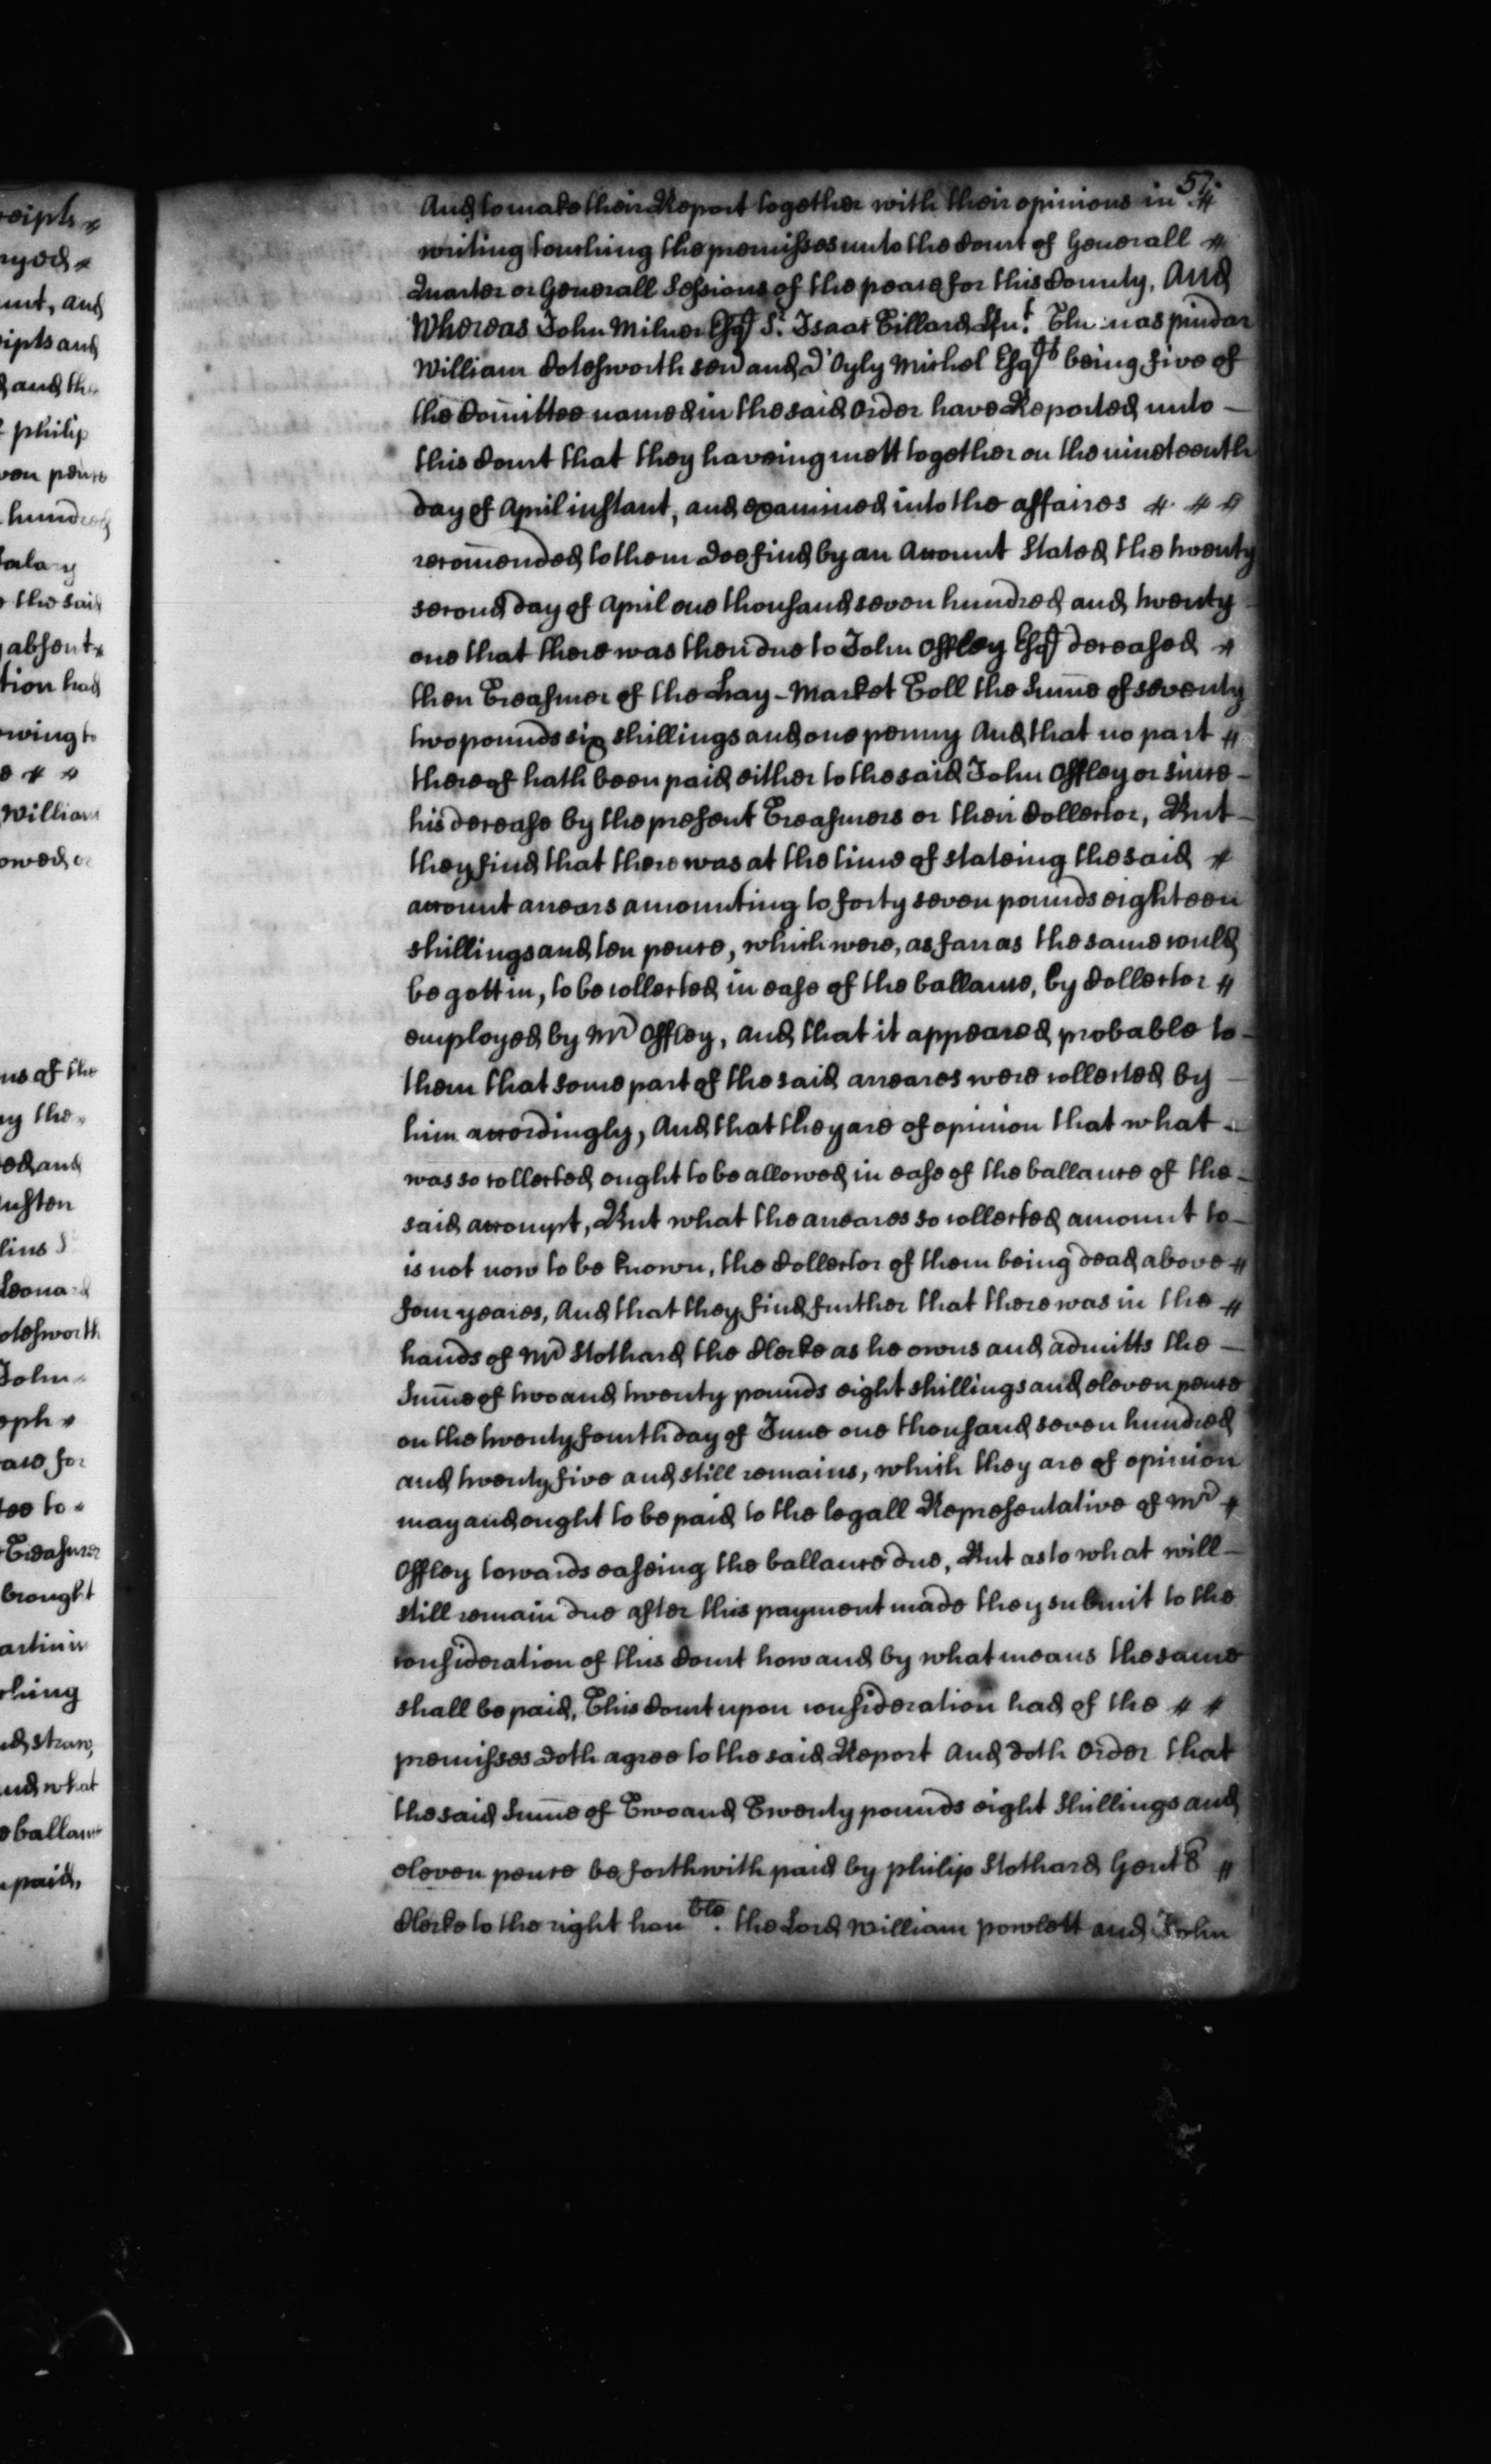 57.
And to make their Report together with their opinions in
writing touching the premisses unto the Court of Generall
Quarter or Generall Sessions of the peace for this County, And
Whereas John Milner Esqr Sr. Isaac Tillard Knt. Thomas pindar
William Cotesworth senr and D'Oyly Michel Esqrs being five of
the Comittee named in the said Order have Reported unto –
this Court that they haveing mett together on the nineteenth
day of April instant, and examined into the affaires
recomended to them doe find by an Account Stated the twenty
second day of April one thousand seven hundred and twenty
one that there was then due to John Offley Esqr deceased
then Treasurer of the Hay-Market Toll the Sume of seventy
two pounds six shillings and one penny And that no part
thereof hath been paid either to the said John Offley or since –
his decease by the present Treasurers or their Collector, But –
they find that there was at the time of stateing the said
account arrears amounting to forty seven pounds eighteen
shillings and ten pence, which were, as farr as the same could
be gott in, to be collected in ease of the ballance, by Collector
employed by Mr Offley, and that it appeared probable to –
them that some part of the said arreares were collected by –
him accordingly, And that they are of opinion that what –
was so collected ought to be allowed in ease of the ballance of the –
said accompt, But what the arreares so collected amount to –
is not now to be known, the Collector of them being dead above
four yeares, And that they find further that there was in the
hands of Mr Stothard the Clerke as he owns and admitts the –
Sume of two and twenty pounds eight shillings and eleven pence
on the twenty fourth day of June one thousand seven hundred
and twenty five and still remains, which they are of opinion
may and ought to be paid to the legall Representative of Mr
Offley towards easeing the ballance due, But as to what will –
still remain due after this payment made they submit to the
consideration of this Court how and by what means the same
shall be paid, This Court upon consideration had of the
premisses doth agree to the said Report And doth Order that
the said Sume of Two and Twenty pounds eight Shillings and
eleven pence be forthwith paid by philip Stothard Gent
Clerke to the right honble. the Lord William powlett and John